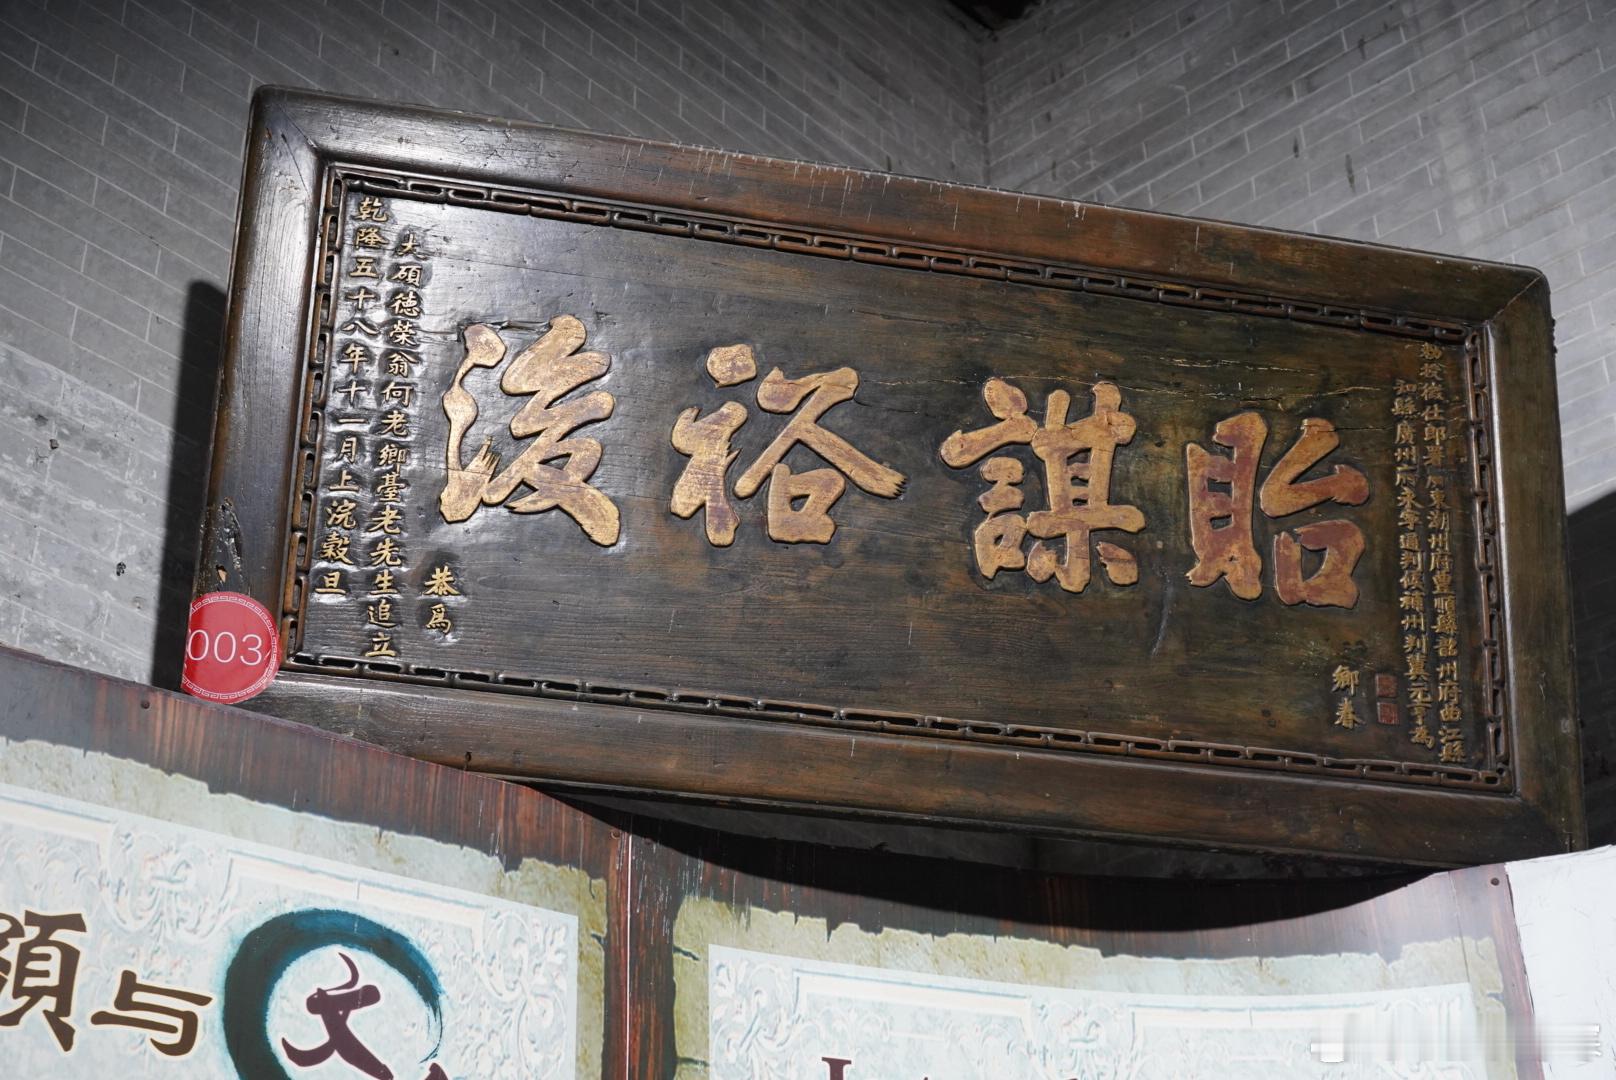 貽謀裕後
勅授徵仕郎署廣東潮州府豐順縣韶州府曲江縣
知縣廣州府永寧通判候補州判冀元亨為
鄉春
恭爲
大碩德榮翁何老鄉臺老先生追立
乾隆五十八年十一月上浣穀旦
003
与
文